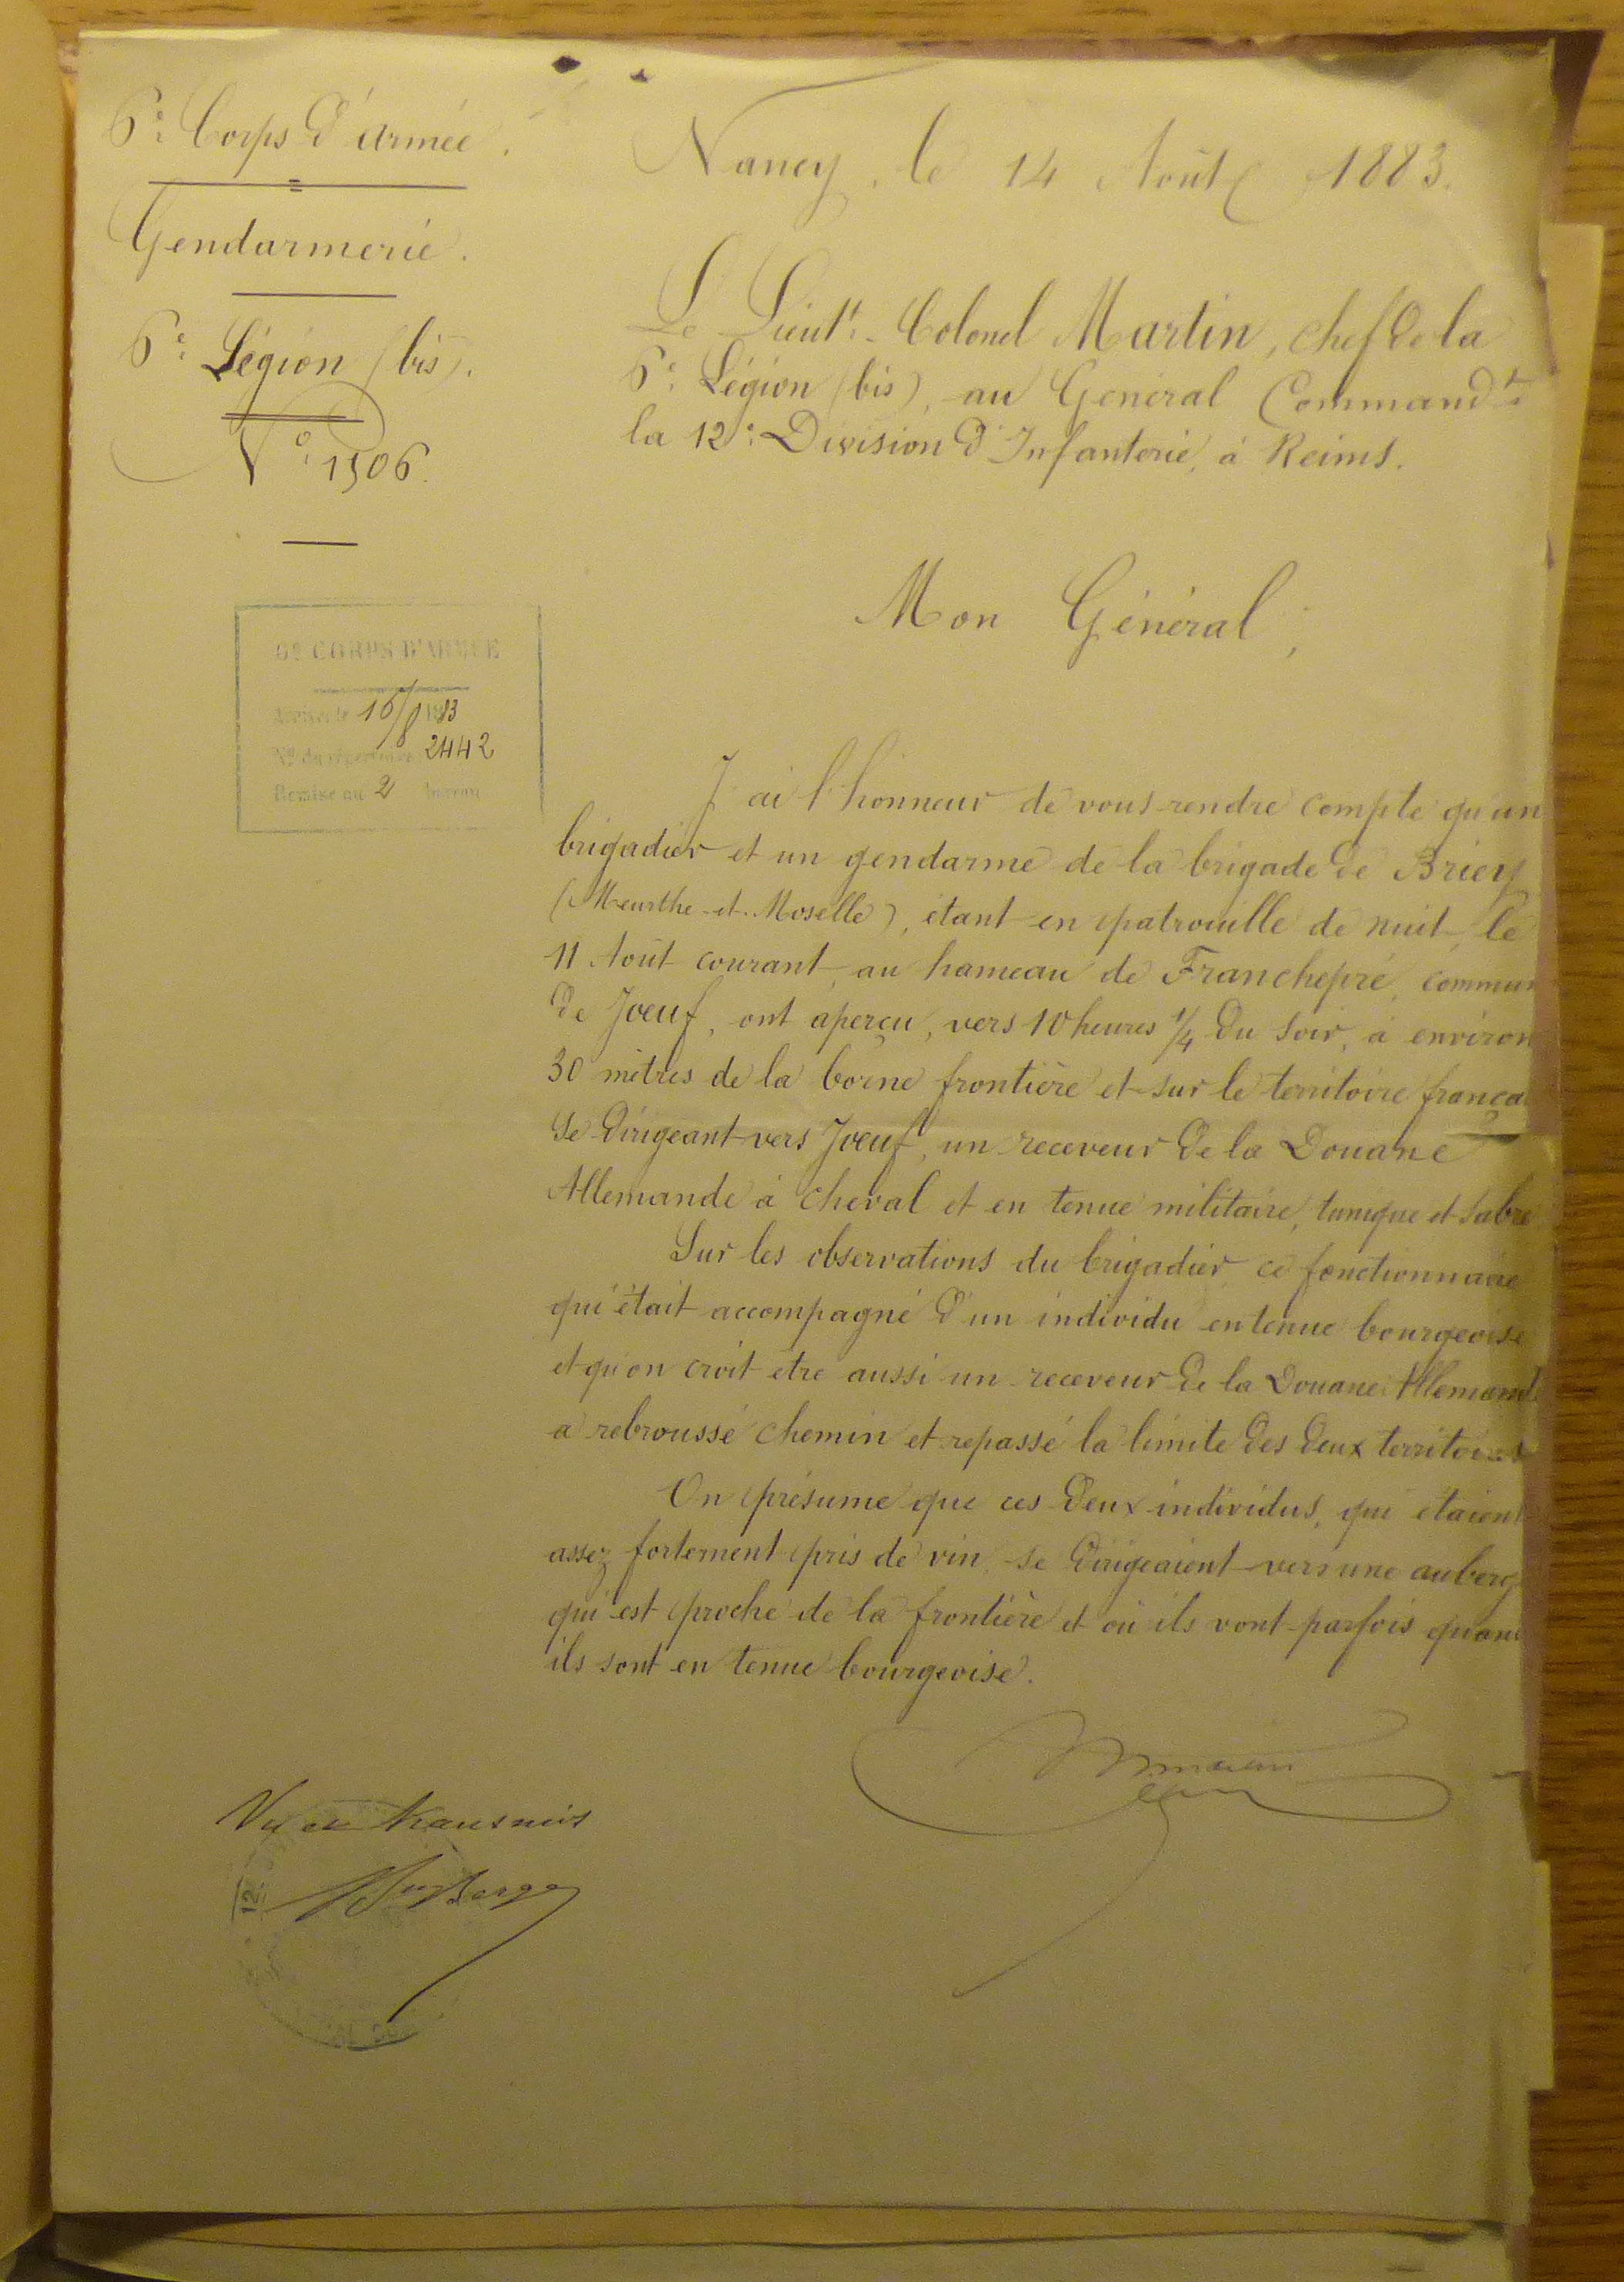 6e Corps d'Armée.
Gendarmerie.
6e Légion (bis).
No 1506.
6e CORPS D'ARMÉE
Arrivée le 16/8 1883
No du répertoire 2442
Remise au 2 bureau
Nancy, le 14 Août 1883.
Le Lieutt. Colonel Martin, chef de la
6e Légion (bis), au Général Commandt
la 12e Division d'Infanterie, à Reims.
Mon Général,
J'ai l'honneur de vous rendre compte qu'un
brigadier et un gendarme de la brigade de Briey
(Meurthe-et-Moselle), étant en patrouille de nuit, le
11 Août courant, au hameau de Franchepré, commun
de Joeuf, ont aperçu, vers 10 heures 1/4 du soir, à environ
30 mètres de la borne frontière et sur le territoire françai
se dirigeant vers Joeuf, un receveur de la Douane
Allemande à cheval et en tenue militaire, tunique et sabre
Sur les observations du brigadier, ce fonctionnaire
qui était accompagné d'un individu en tenue bourgeoise
et qu'on croit être aussi un receveur de la Douane Allemande
a rebroussé chemin et repassé la limite des deux territoires
On présume que ces deux individus, qui étaient
assez fortement pris de vin, se dirigeaient vers une auberg
qui est proche de la frontière et où ils vont parfois quand
ils sont en tenue bourgeoise.
Vu et transmis
12